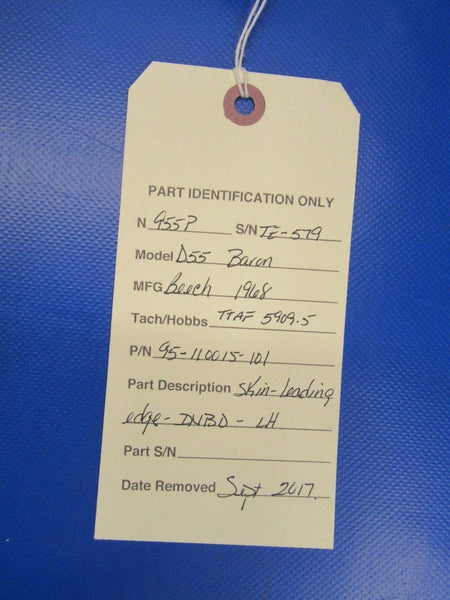 PART IDENTIFICATION ONLY
N 955P S/N TE-579
Model D55 Baron
MFG Beech 1968
Tach/Hobbs TTAF 5909.5
P/N 95-110015-101
Part Description Skin-leading
edge-INBD-LH
Part S/N
Date Removed Sept 2017.